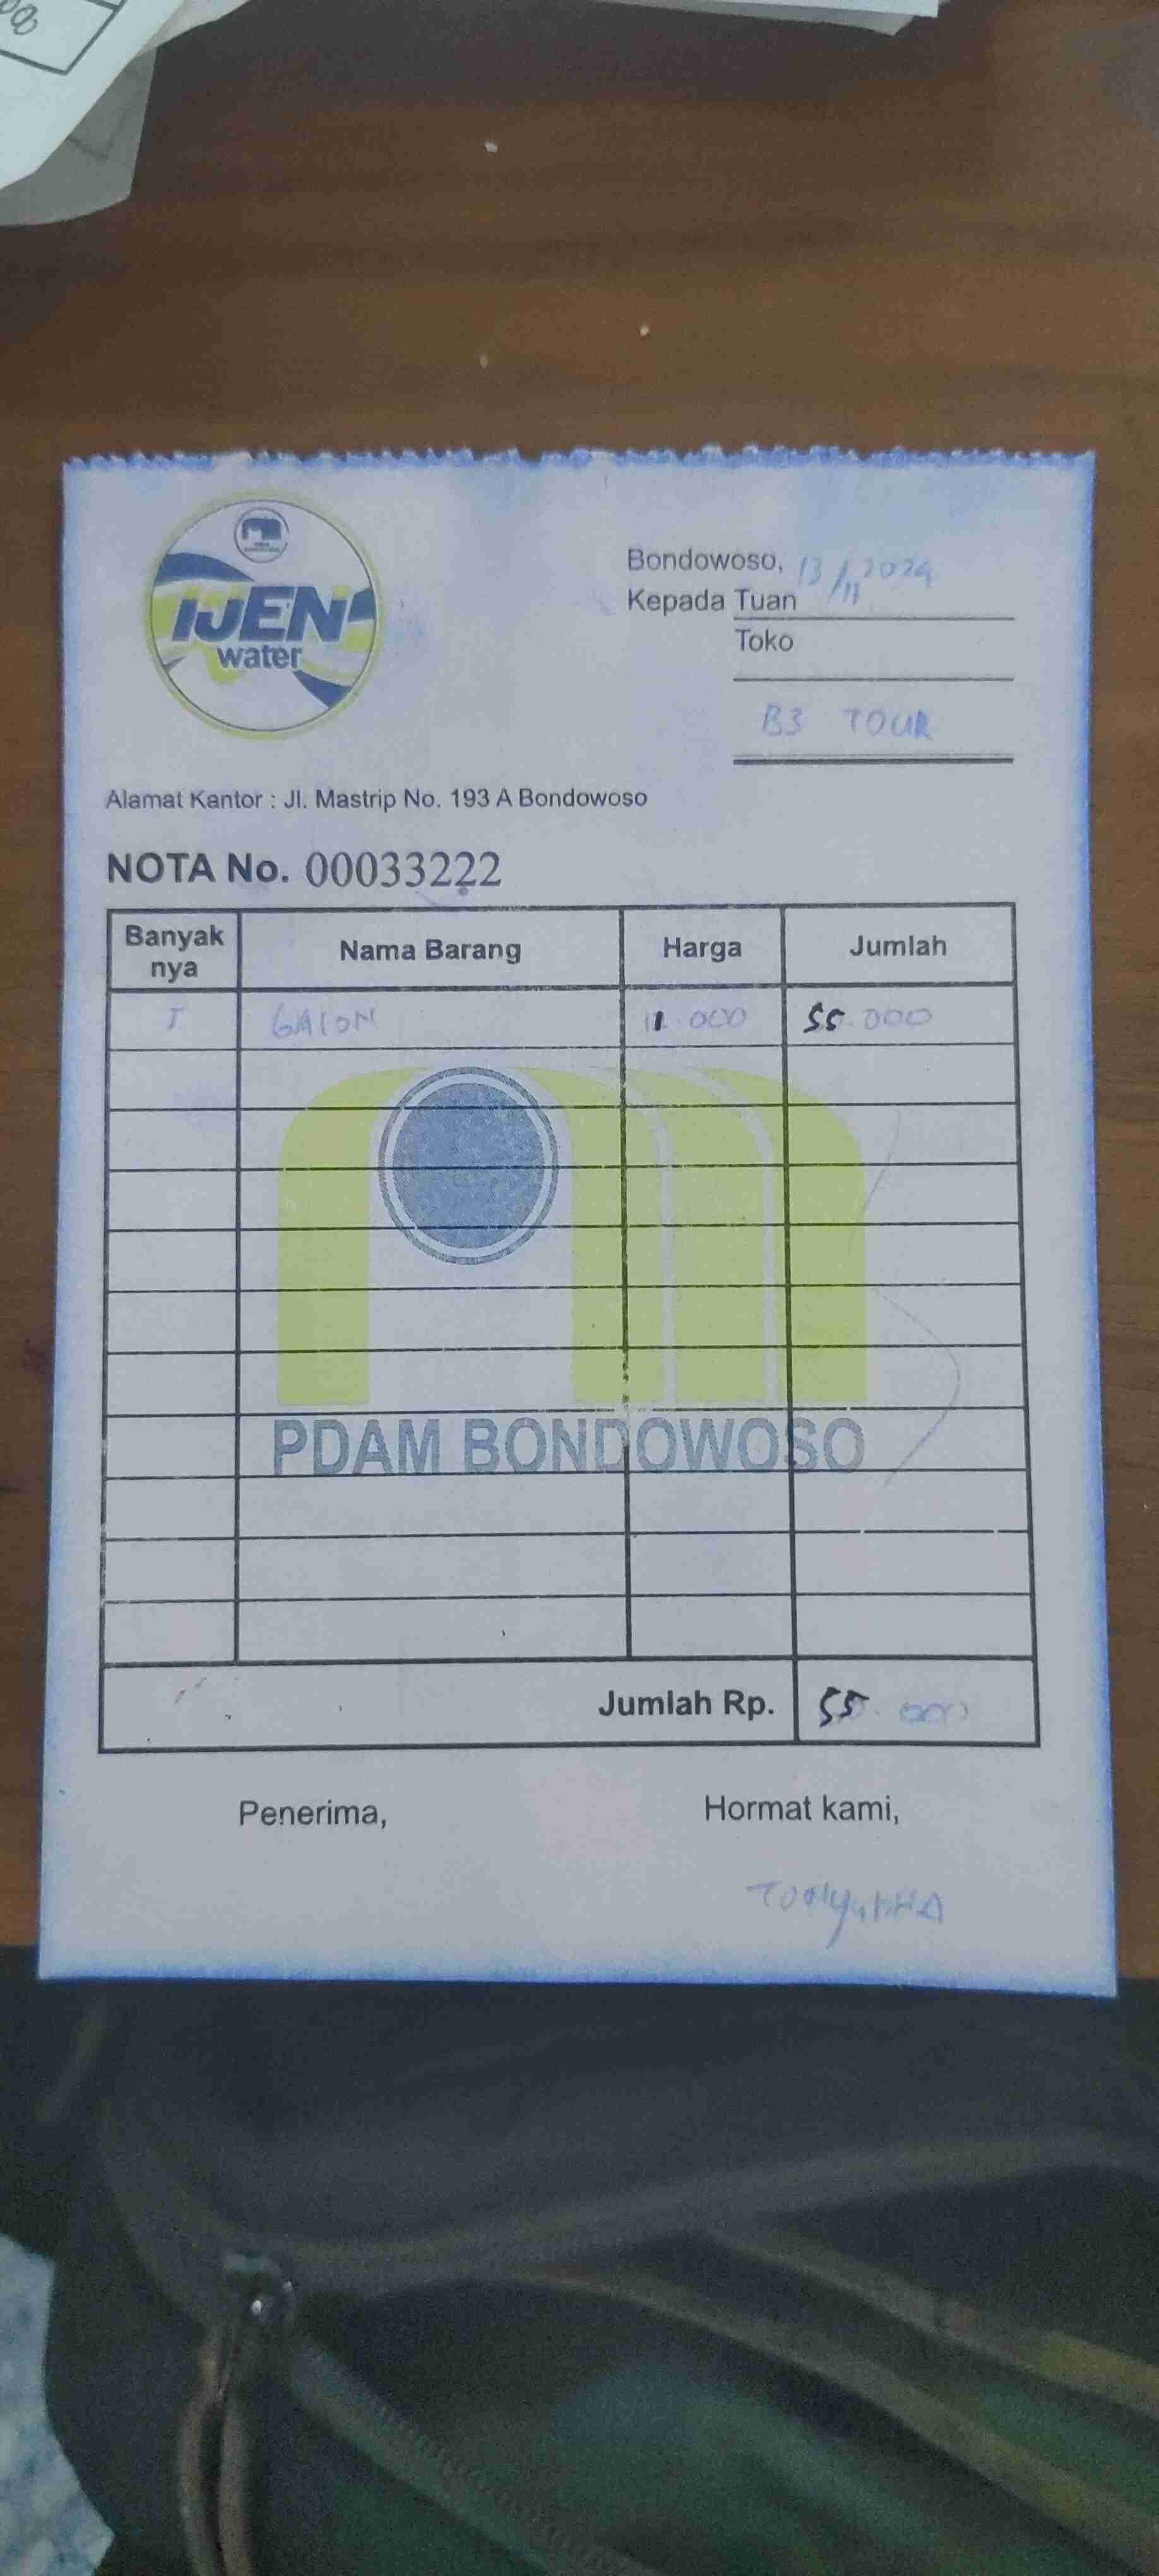 IJEN
water
Bondowoso, 13/11 2024
Kepada Tuan
Toko
B3 TOUR
Alamat Kantor : Jl. Mastrip No. 193 A Bondowoso
NOTA No. 00033222
Banyak nya Nama Barang Harga Jumlah
5 GALON 11.000 55.000
PDAM BONDOWOSO
Jumlah Rp. 55.000
Penerima, Hormat kami,